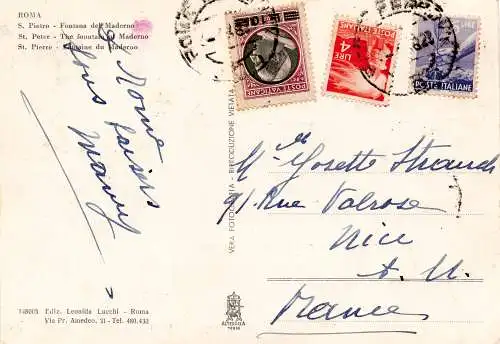 ROMA
S. Pietro - Fontana del Maderno
St. Peter - The fountain of Maderno
St. Pierre - Fontaine du Maderno
de Rome
bons baisers
VERA FOTOGRAFIA - RIPRODUZIONE VIETATA
POSTE VATICANE
LIRE 4
POSTE ITALIANE
POSTE ITALIANE
Josette
91 Rue Valrose
Nice
A. M.
France
Ediz. Leonida Lucchi - Roma
Via Pr. Amedeo, 21 - Tel. 480.432